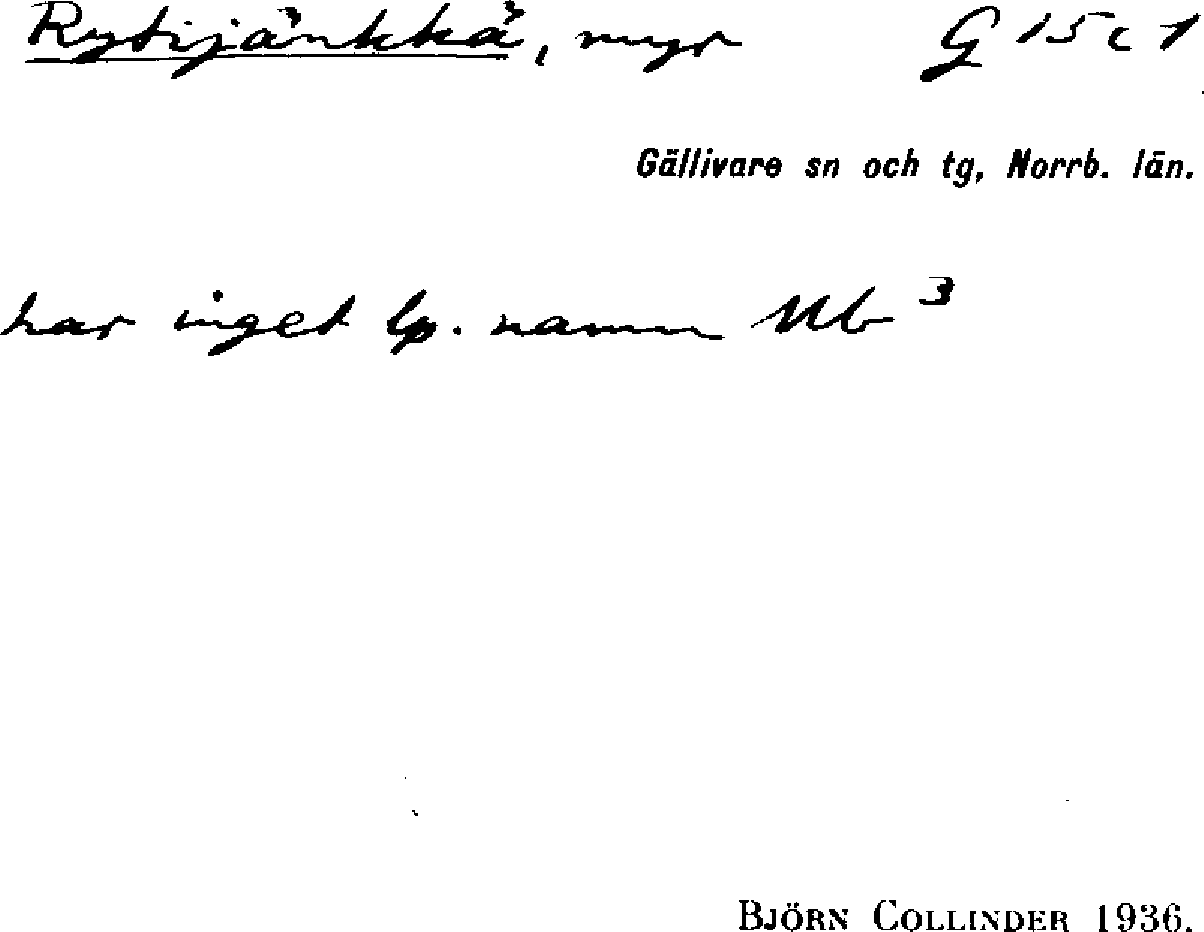 Rytijänkkä, myr G 15 c 1
Gällivare sn och tg, Norrb. län.
har inget lp. namn Nb 3
BJÖRN COLLINDER 1936.